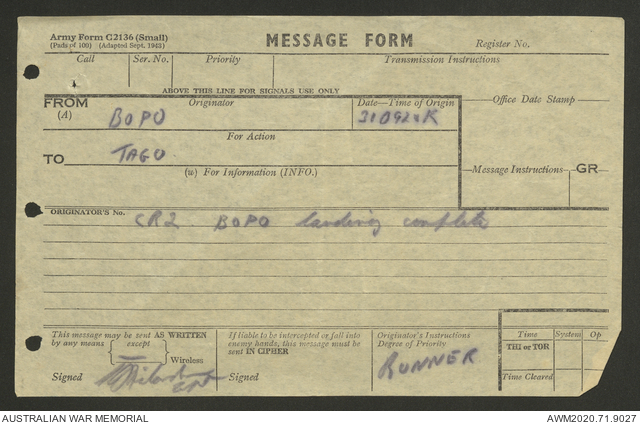 Army Form C2136 (Small)
(Pads of 100) (Adapted Sept. 1943)
MESSAGE FORM
Register No.
Call Ser. No. Priority Transmission Instructions
ABOVE THIS LINE FOR SIGNALS USE ONLY
FROM Originator Date—Time of Origin Office Date Stamp
(A) BOPO K
For Action
TO TAGO
(w) For Information (INFO.) Message Instructions GR
ORIGINATOR'S No. CR2 BOPO landing complete
This message may be sent AS WRITTEN
by any means except
Wireless
Signed
If liable to be intercepted or fall into
enemy hands, this message must be
sent IN CIPHER
Signed
Originator's Instructions
Degree of Priority
RUNNER
Time System Op
THI or TOR
Time Cleared
AUSTRALIAN WAR MEMORIAL AWM2020.71.9027